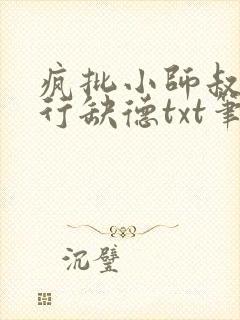 疯批小师叔
行缺德txt笔
沉璧